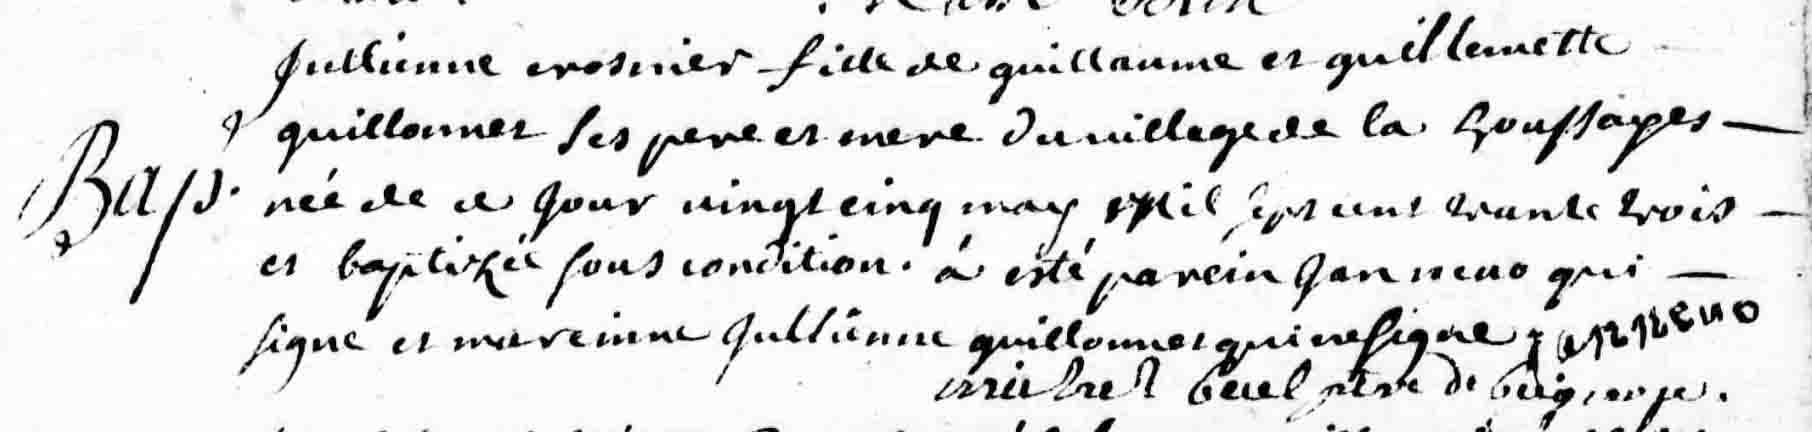 Jullienne crosnier fille de guillaume et guillemette
guillonnet ses pere et mere du village de la
Bap. née de ce jour vingt cinq may mil sept cent trante trois
et baptizée sous condition. à esté parein Jan neuo qui
signe et mareinne Jullienne guillonnet qui ne signe